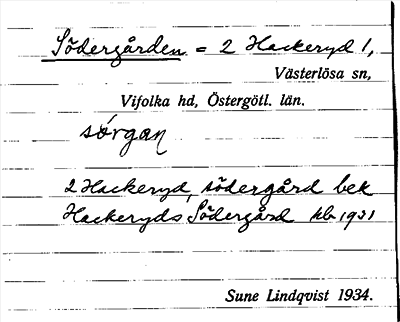 Södergården = 2 Hackeryd 1,
Västerlösa sn,
Vifolka hd, Östergötl. län.
sǿrgaɳ
2 Hackeryd, södergård bek
Hackeryds Södergård kb 1931
Sune Lindqvist 1934.